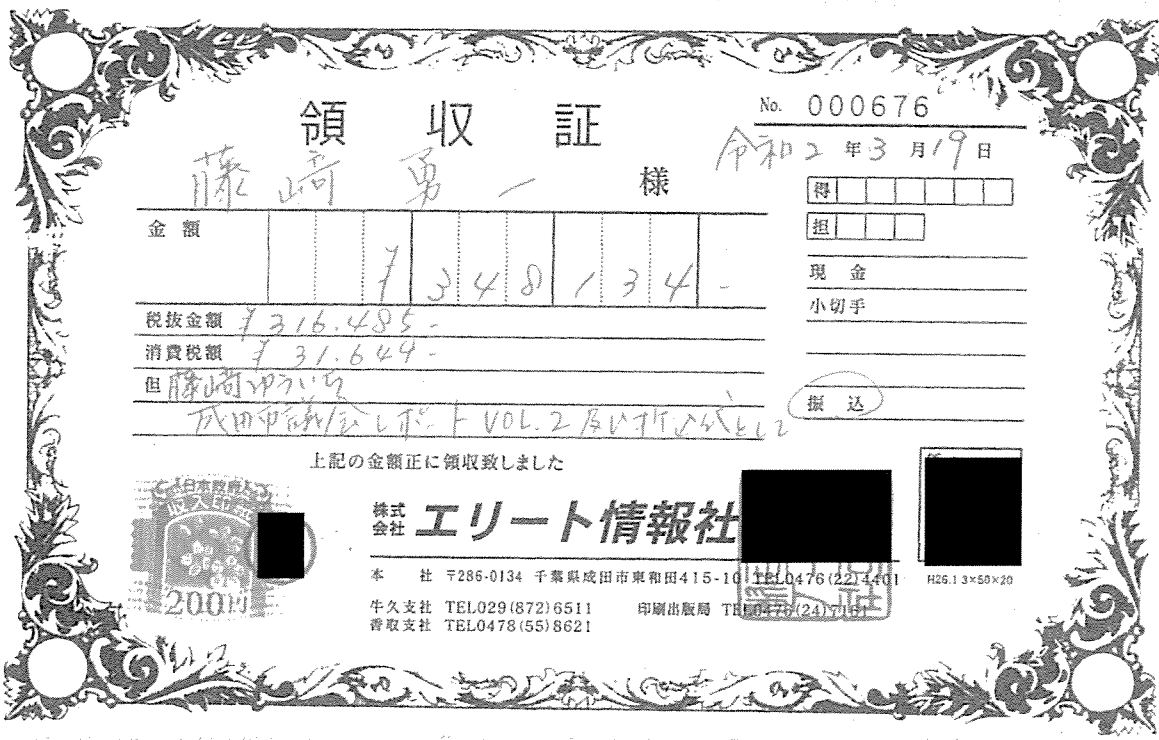 領収証
No. 000676
令和2年3月19日
藤﨑 勇一 様
得
担
金額 ¥348134-
現金
小切手
税抜金額 ¥316.485-
消費税額 ¥31.649-
但 藤﨑ゆういち
振込
成田市議会レポートVOL.2及び折込代として
上記の金額正に領収致しました
日本政府
収入印紙
200円
株式会社 エリート情報社
本社 〒286-0134 千葉県成田市東和田415-10 TEL0476(22)4401
H26.1 3×50×20
牛久支社 TEL029(872)6511 印刷出版局 TEL0476(24)7161
香取支社 TEL0478(55)8621